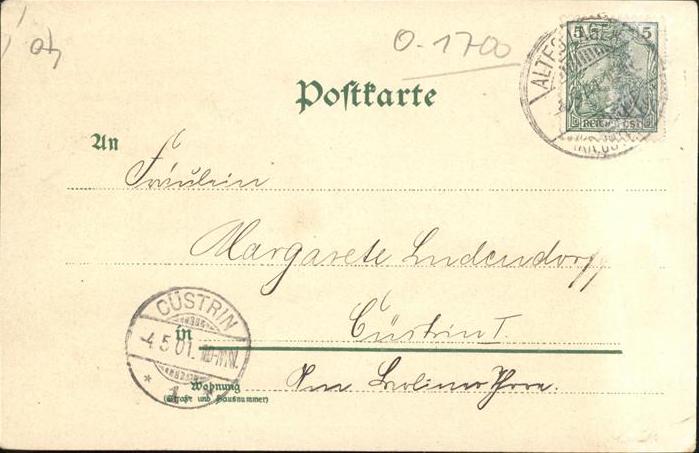 04
0-1700
5 5
REICHSPOST
Postkarte
An
Fräulein
Margarete Ludendorff
Cüstrin I.
in
CÜSTRIN
4.5.01.
1
*
Am Berliner Thore.
Wohnung
(Straße und Hausnummer)